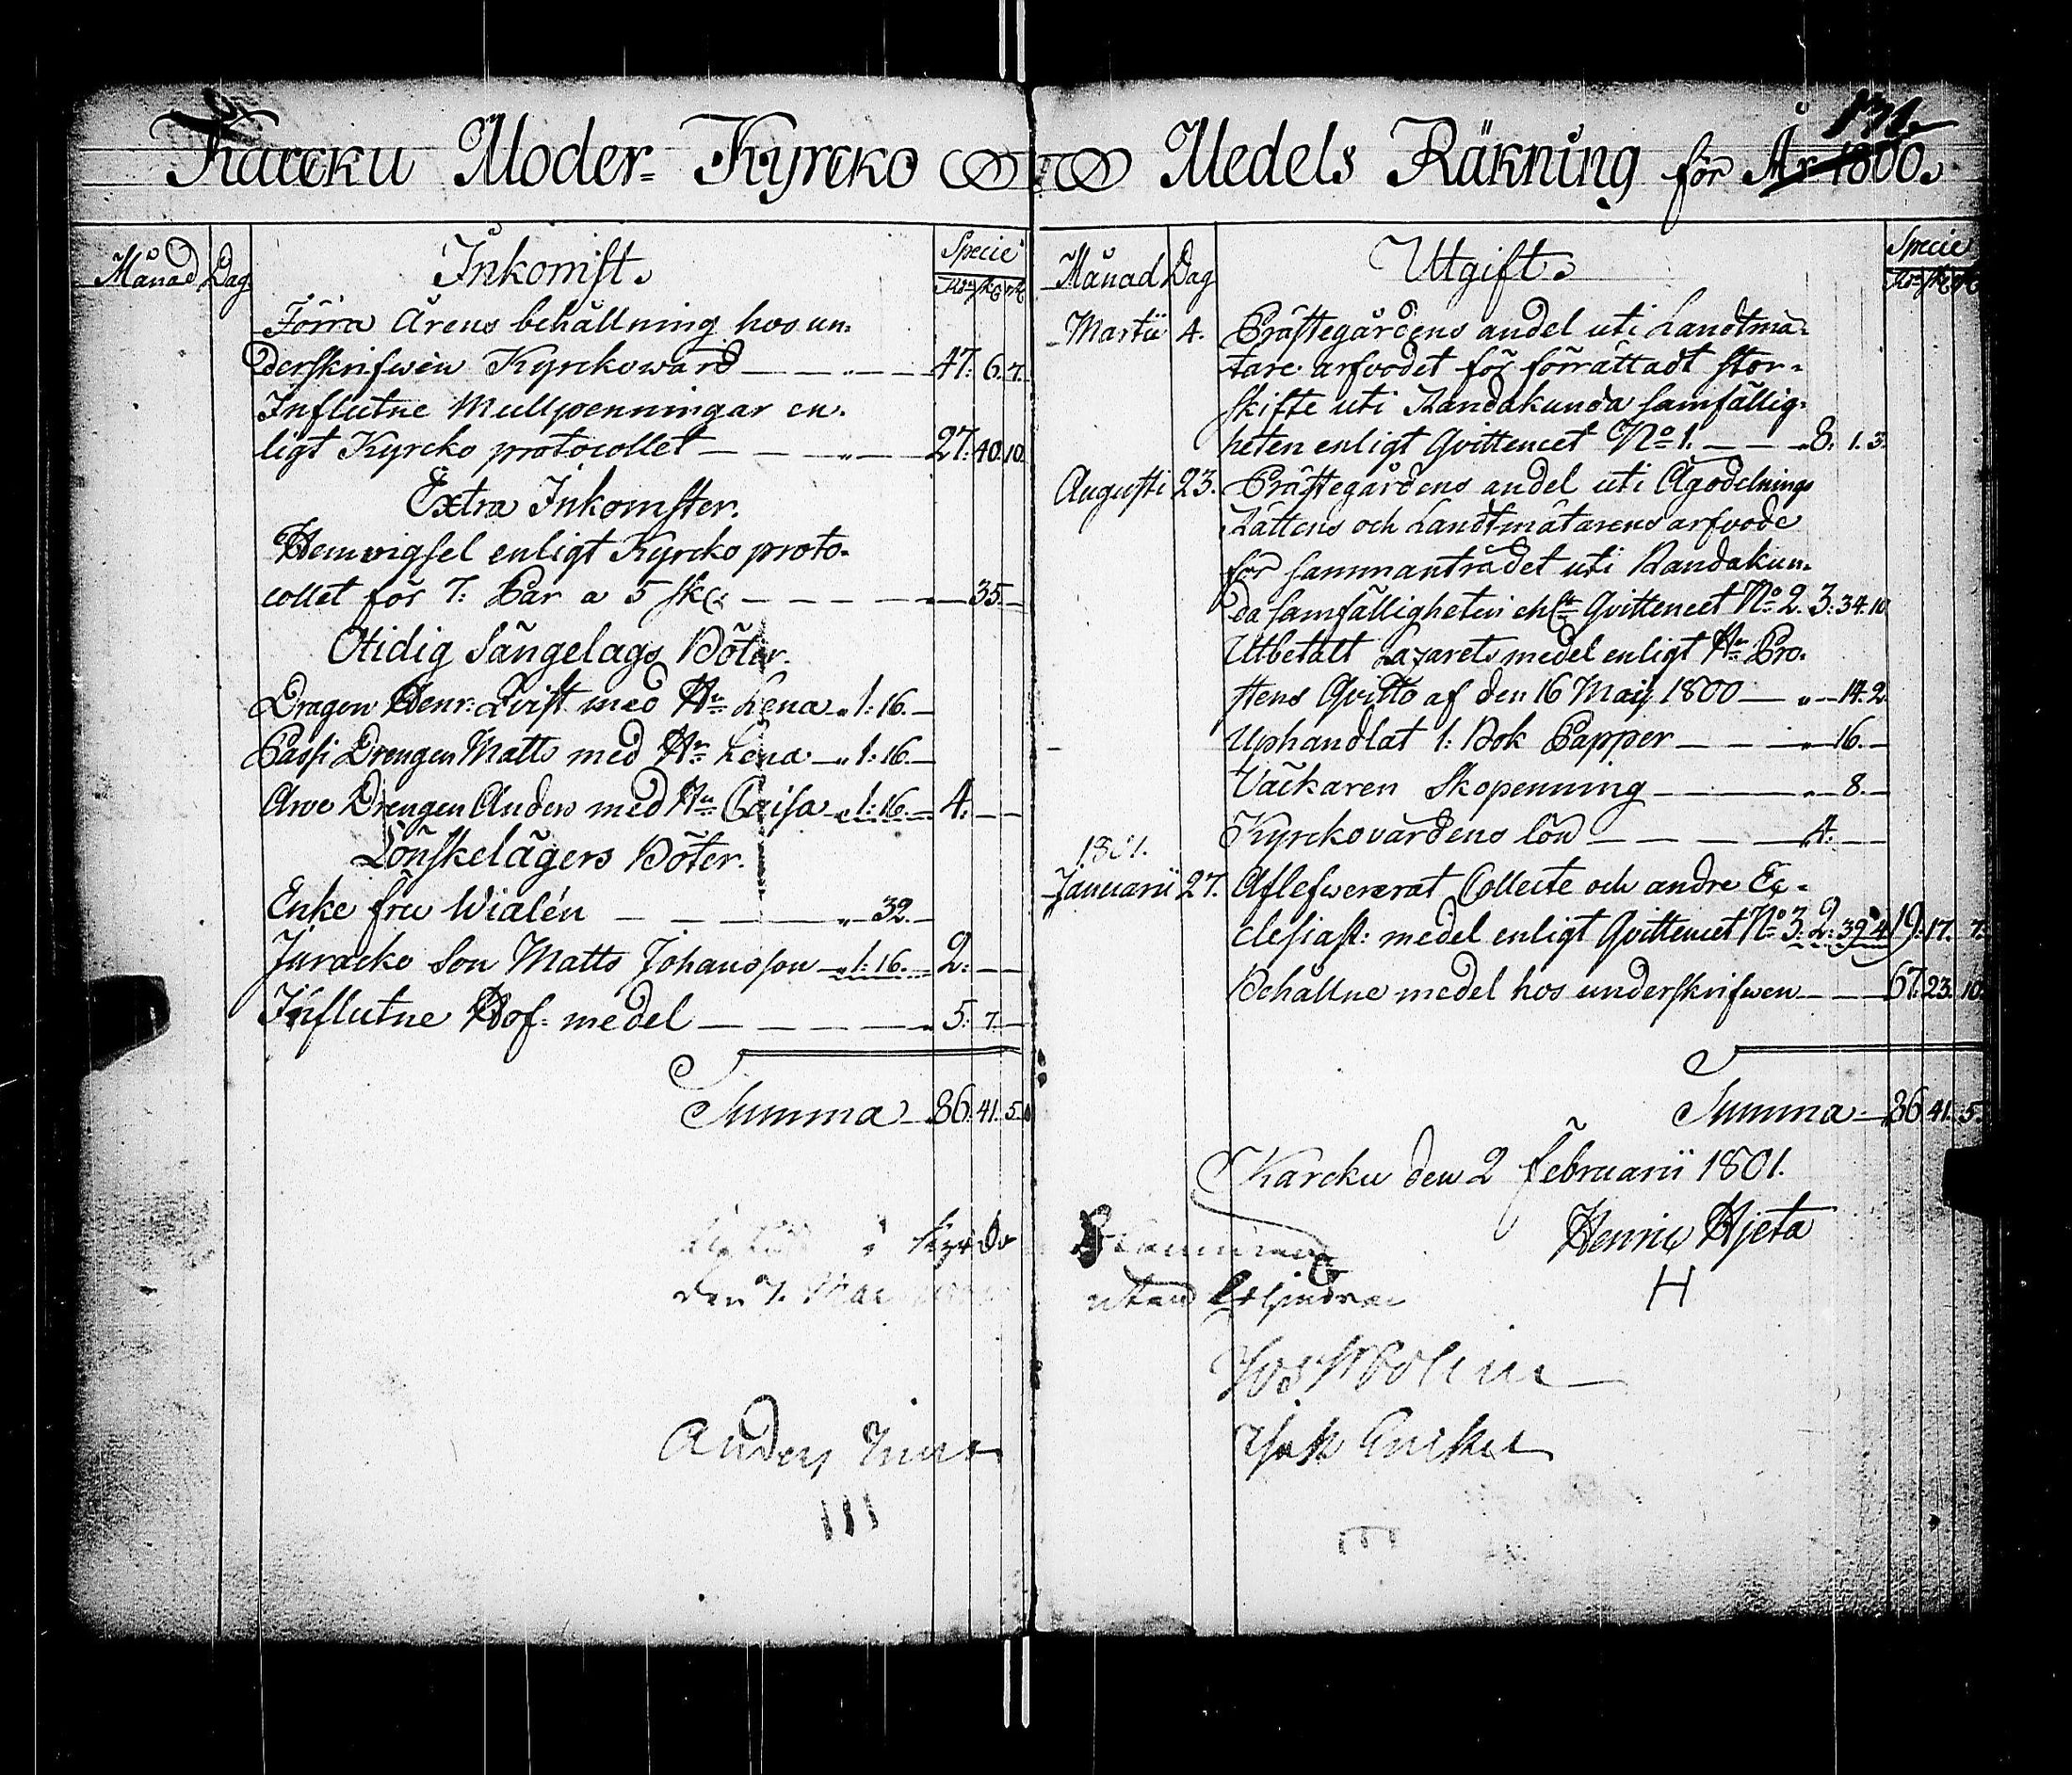 171.
Karcku Moder- Kyrcko Medels Räkning för År 1800.
Månad Dag Inkomst. Specie
Förra Årens behållning hos un-
derskrifwen Kyrckoward 47: 6. 7.
Influtne Mullpenningar en-
ligt Kyrcko protocollet 27: 40. 10.
Extra Inkomster.
Hemvigsel enligt Kyrcko proto-
collet för 7: Par a 5 sk: 35.
Otidig Sängelags Böter.
Dragon Henr: Qvist med Hu Lena 1: 16.
Passi Drengen Matts med Hu Lena 1: 16.
Arve Drengen Anders med Hu Caisa 1: 16. 4.
Lönskelägers Böter.
Enke fru Wialén 32.
Juracko Son Matts Johansson 1: 16. 2:
Influtne Hof- medel 5: 7.
Summa 86. 41. 5.
den 7. Mar
Anders
III
Månad Dag Utgift. Specie
Martii 4. Prästegårdens andel uti Landtmä-
tare arfvodet för förrättadt stor-
skifte uti Kandakunda samfällig-
heten enligt Qvittencet No 1. 8. 1. 3.
Augusti 23. Prästegårdens andel uti Ägodelnings
Rättens och Landtmätarens arfvode
för sammanträdet uti Kandakun-
da samfälligheten enl Qvittencet No 2. 3: 34. 10
Utbetalt Lazarets medel enligt Hr Pro-
stens Qvitto af den 16 Maij 1800 14. 2
Uphandlat 1: Bok Papper 16.
Väckaren Skopenning 8.
Kyrckovärdens lön 4:
1801.
Januarii 27. Aflefwererat Collecte och andre Ec-
clesiast: medel enligt Qvittencet No 3: 2: 39. 4 19: 17. 7.
Behållne medel hos underskrifwen 67: 23. 10.
Summa 86. 41. 5.
Karcku den 2 Februarii 1801.
Henric Hjeta
H
utan